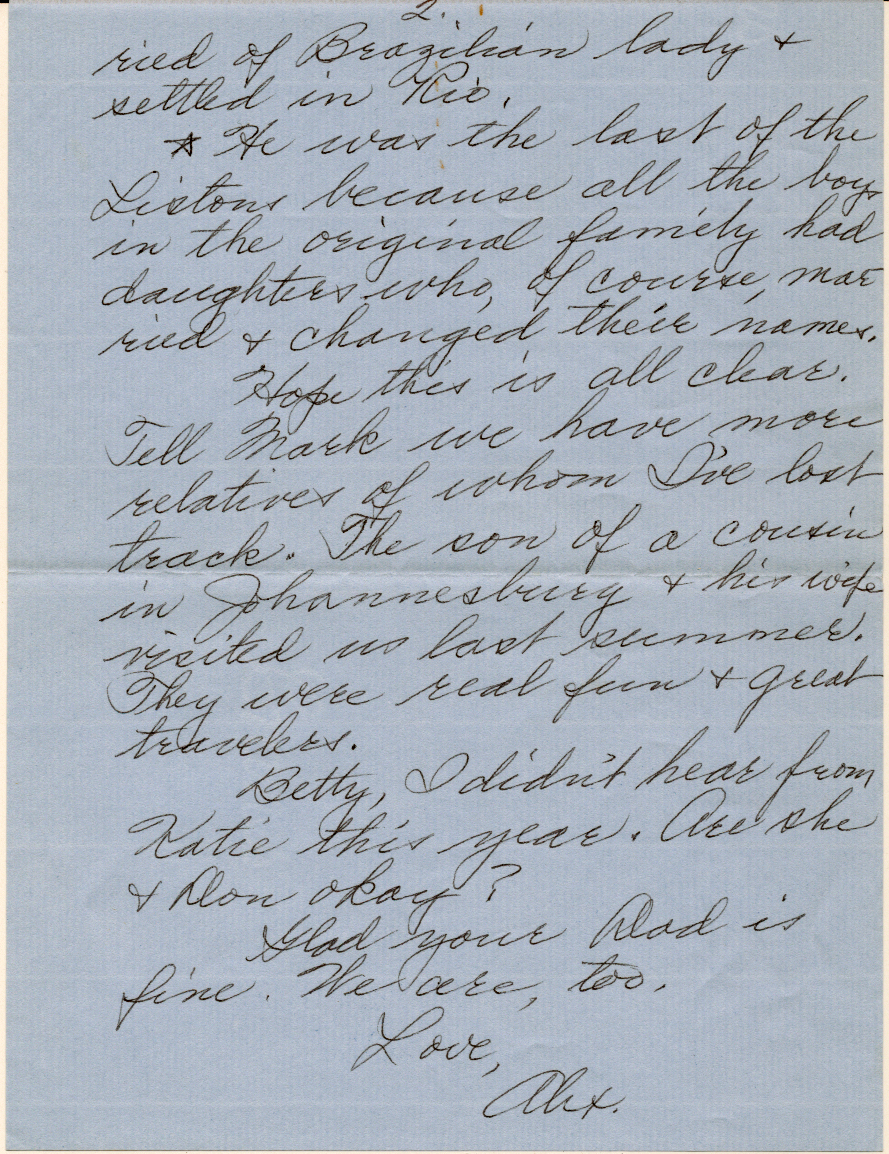 2.
ried of Brazilian lady &
settled in Rio.
* He was the last of the
Listons because all the boys
in the original family had
daughters who, of course, mar
ried & changed their names.
Hope this is all clear.
Tell Mark we have more
relatives of whom I've lost
track. The son of a cousin
in Johannesburg & his wife
visited us last summer.
They were real fun & great
travelers.
Betty, I didn't hear from
Katie this year. Are she
& Don okay?
Glad your Dad is
fine. We are, too.
Love,
Alex.